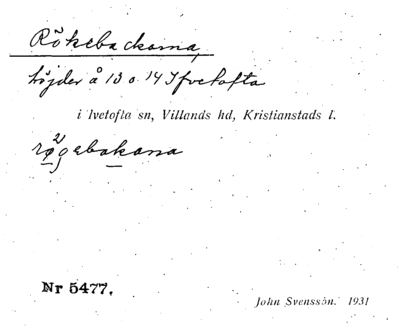 Rökebackarna,
höjder å 13 o. 14 Ifvetofta
i Ivetofta sn, Villands hd, Kristianstads l.
rø²gebakana
Nr 5477.
John Svensson. 1931